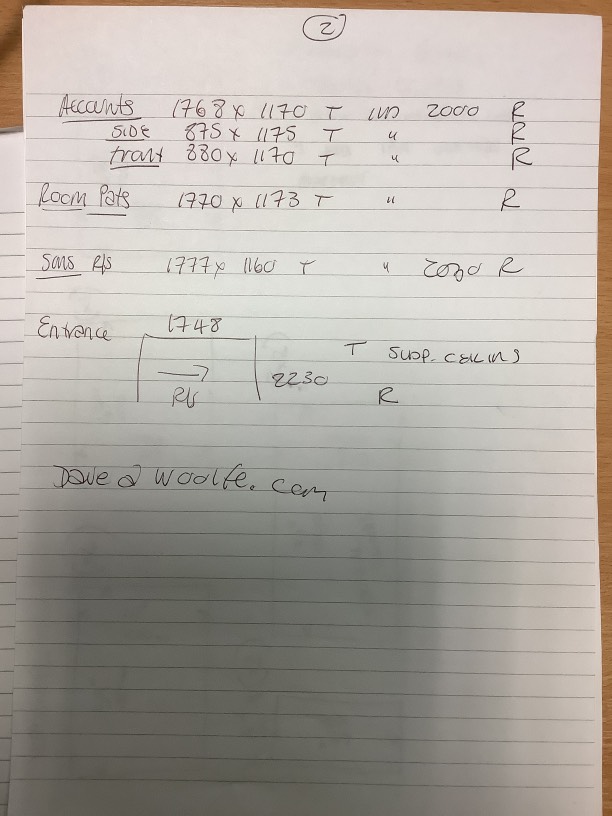 2
Accounts 1768 x 1170 T 2000 R
SIDE 875 x 1175 T " R
front 880 x 1170 T " R
Room Pats 1770 x 1173 T " R
R/s 1777 x 1160 T " R
Entrance 1748
T SUSP. CEILING
2230
R/s R
Dave @ Woolfe.com